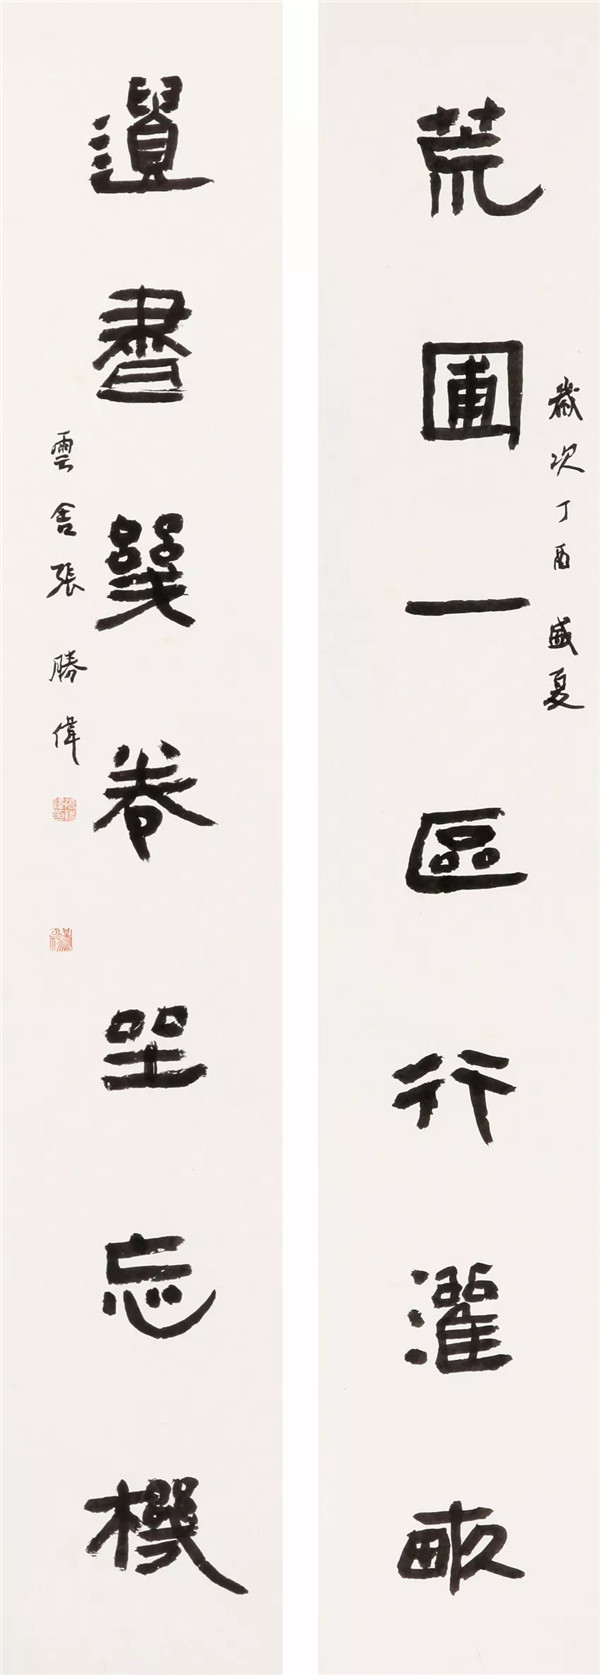 歲次丁酉 盛夏
荒圃一區行灌畝
遺書幾卷坐忘機
雲舍張勝偉